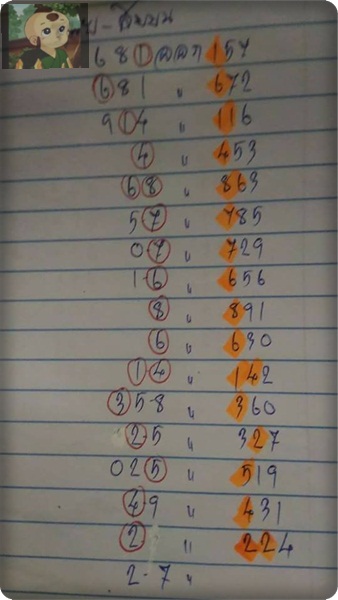 บ - สิบบน
681 ออก 157
681 " 672
914 " 116
4 " 453
68 " 863
57 " 785
07 " 729
1-6 " 656
8 " 891
6 " 630
14 " 142
35-8 " 360
2-5 " 327
025 " 519
49 " 431
2 " 224
2-7 "